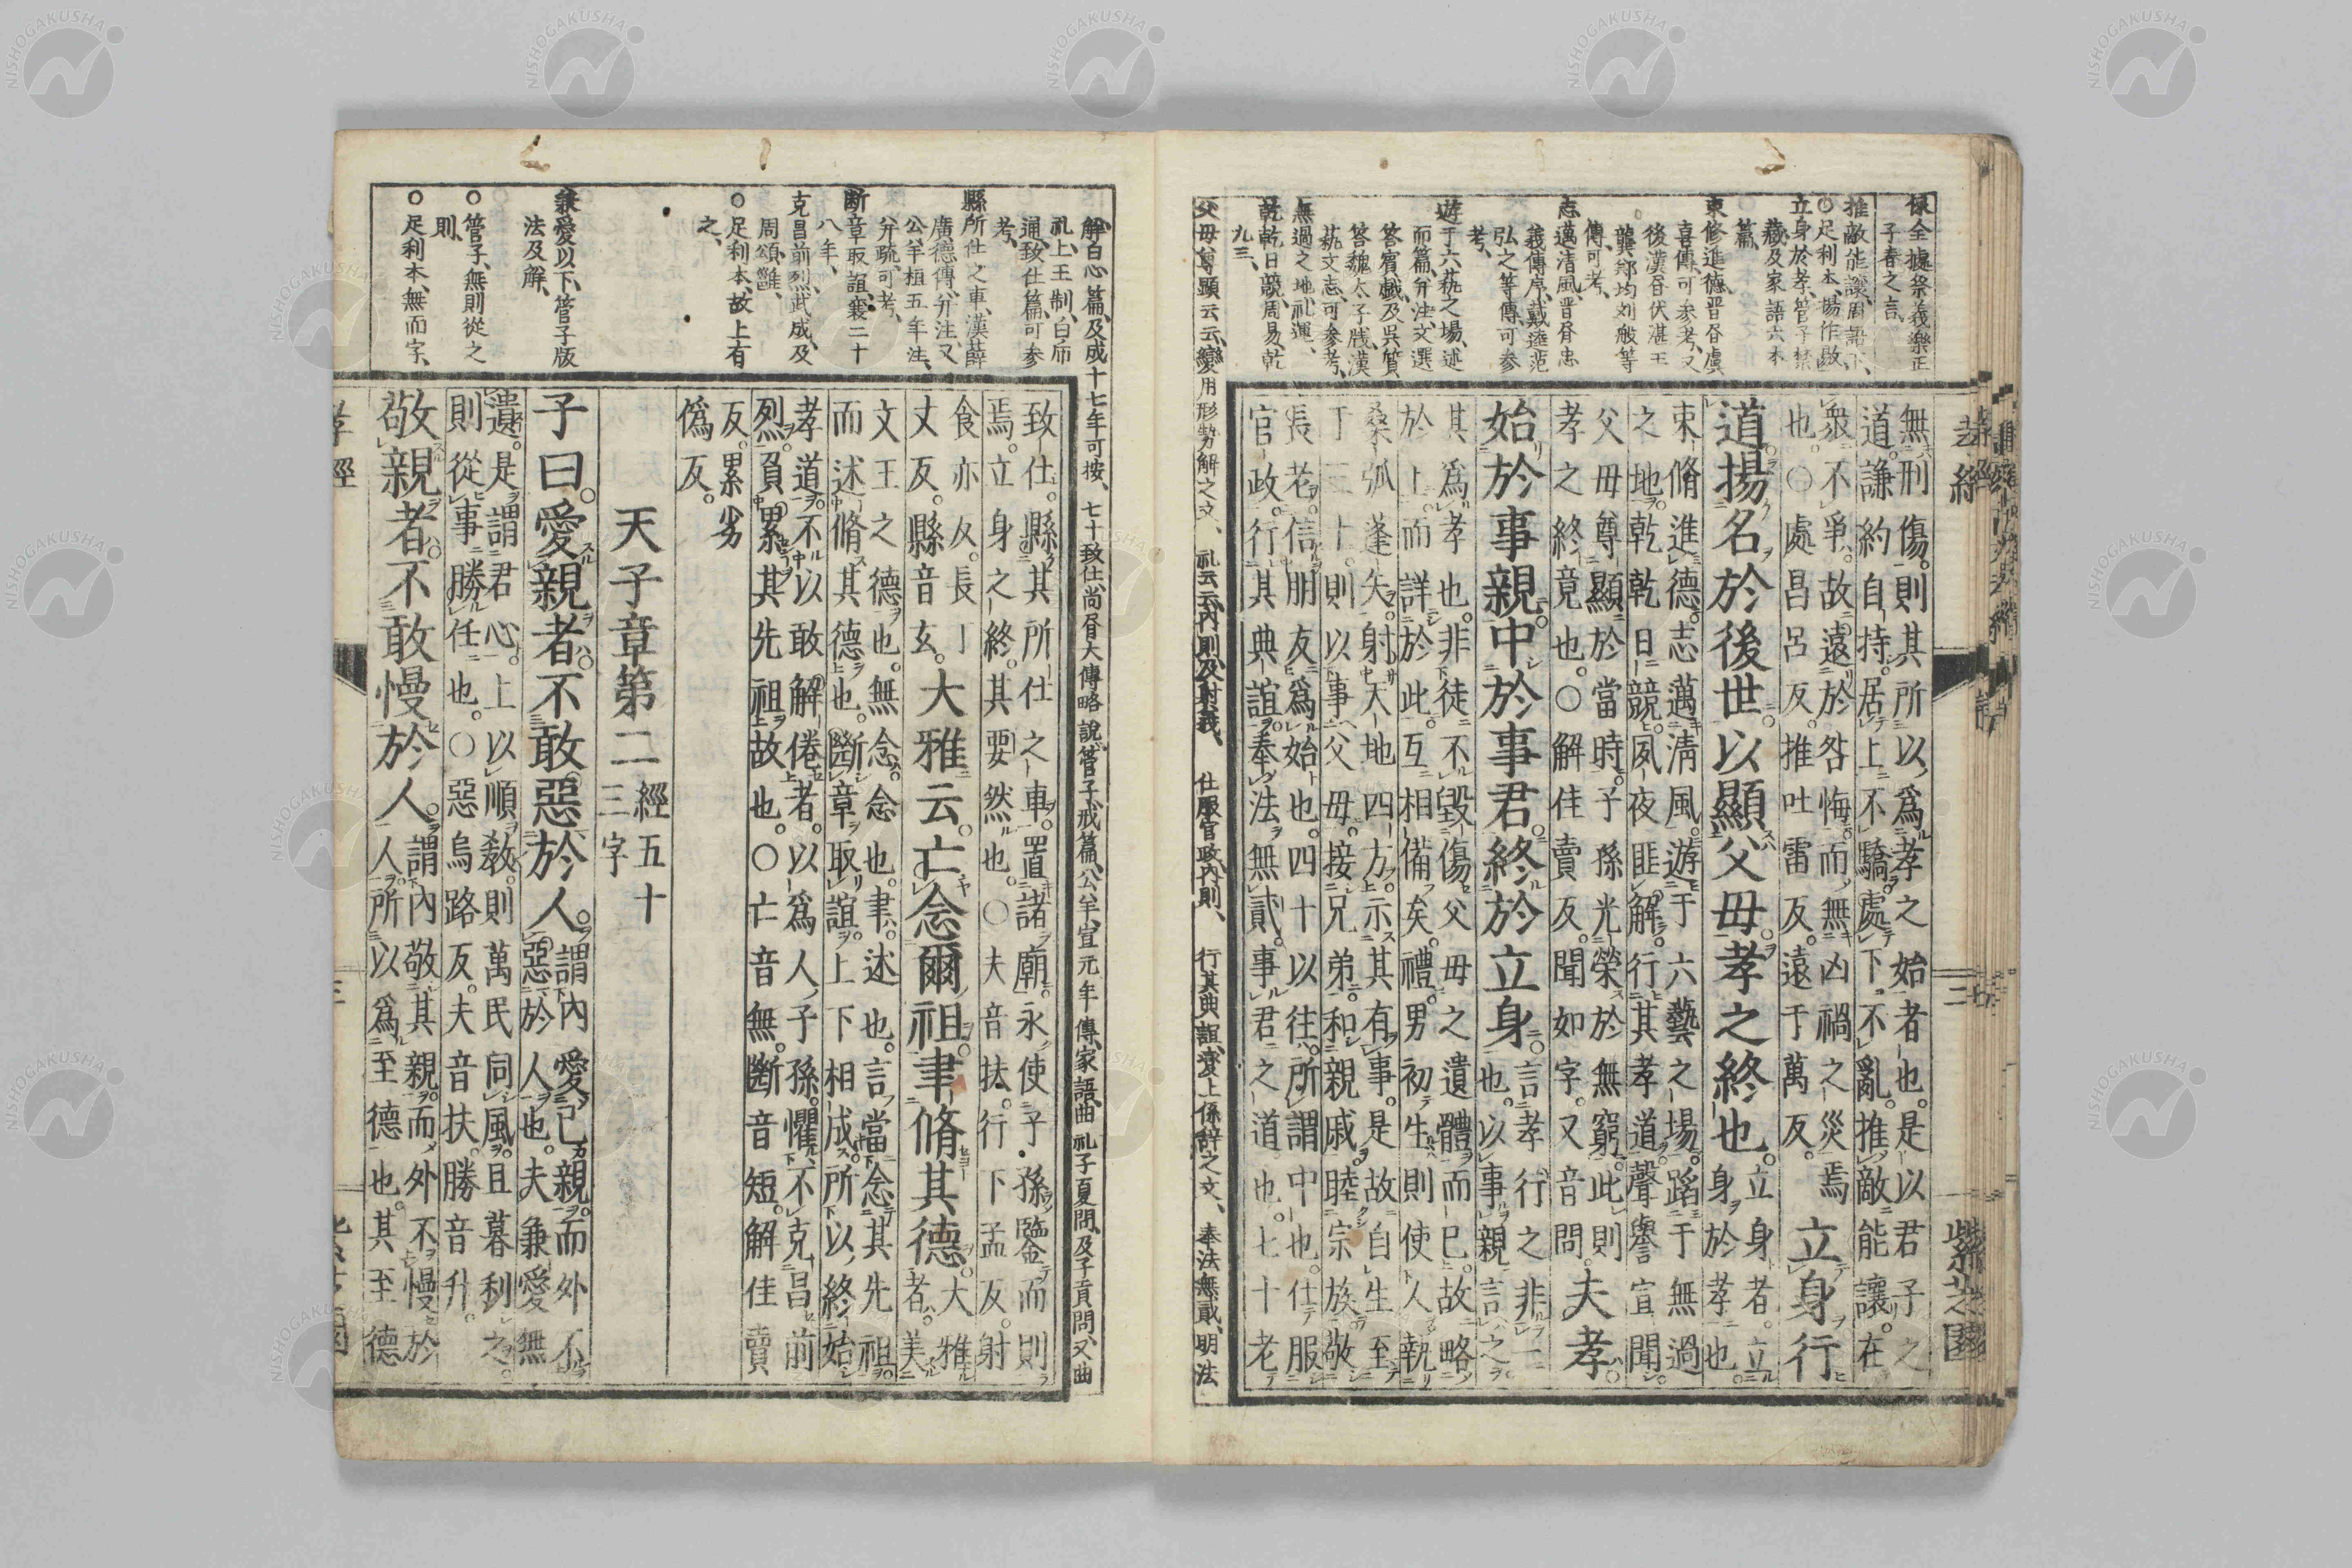 保全據祭義樂正
子春之言
推敵能讓、周語下、
○足利本、揚作敭
立身於孝、管子禁
藏及家語六本
篇、
束修進德、晋書虞
喜傳、可參考、又
後漢書伏湛王
龔鄭均刘般等
傳、可考、
志邁清風、晋書忠
義傳序、戴逵范
弘之等傳、可参
考、
遊于六萟之場、述
而篇、并注、文選
答賓戲及吳質
答魏太子牋、漢
萟文志、可参考、
無過之地、礼運、
乾乾日競、周易、乾
九三、
父母尊顯云云、變用形勢解之文、 礼云云、内則及射義、 仕服官政、内則、 行其典誼、変上係辞之文、 奉法無貳、明法
孝經
三
紫芝園
無刑傷。則其所以爲孝之始者也。是以君子之
道。謙約自持。居上不驕。處下不亂。推敵能讓。在
衆不爭。故遠於咎悔。而無凶禍之災焉
也。○處昌呂反。推吐雷反。遠于萬反。
立身行
道。揚名於後世。以顯父母。孝之終也。
立身者。立
身於孝也。
束脩進德。志邁淸風。遊于六藝之場。蹈于無過
之地。乾乾日競。夙夜匪解。行其孝道。聲譽宣聞。
父母尊顯於當時。子孫光榮於無窮。此則
孝之終竟也。○解佳賣反。聞如字。又音問。
夫孝。
始於事親。中於事君。終於立身。
言孝行之非一
也。以事親言之。
其爲孝也。非徒不毀傷父母之遺體而已。故略
於上。而詳於此。互相備矣。禮。男初生。則使人執
桑弧蓬矢。射天地四方。示其有事。是故自生至
于三十。則以事父母。接兄弟。和親戚。睦宗族。敬
長老。信朋友爲始也。四十以往。所謂中也。仕服
官政。行其典誼。奉法無貳。事君之道也。七十老
解、白心篇、及成十七年可按、 七十致仕、尚書大傳略說、管子戒篇、公羊、宣元年傳、家語、曲礼子夏問、及子貢問、又曲
礼上、王制、白虎
通、致仕篇、可参
考、
縣所仕之車、漢薛
廣德傳、并注、又
公羊、桓五年注、
并疏、可考、
断章取誼、襄二十
八年、
克昌前烈、武成、及
周頌雝、
○足利本、故上有
之、
兼愛以下、管子版
法及解、
○管子、無則從之
則、
○足利本、無而字、
致仕。縣其所仕之車。置諸廟。永使子孫鑒而則
焉。立身之終。其要然也。○夫音扶。行下孟反。射
食亦反。長丁
丈反。縣音玄。
大雅云。亡念爾祖。聿脩其德。
大雅
者。美
文王之德也。無念。念也。聿。述也。言當念其先祖。
而述脩其德也。斷章取誼。上下相成。所以終始
孝道。不以敢解倦者。以爲人子孫。懼不克昌前
烈。負累其先祖故也。○亡音無。斷音短。解佳賣
反。累劣
僞反。
天子章第二
經五十
三字
子曰。愛親者。不敢惡於人。
謂內愛己親。而外不
惡於人也。夫兼愛無
遺。是謂君心。上以順敎。則萬民同風。且暮利之。
則從事勝任也。○惡烏路反。夫音扶。勝音升。
敬親者。不敢慢於人。
謂內敬其親。而外不慢於
人。所以爲至德也。其至德
孝經
三